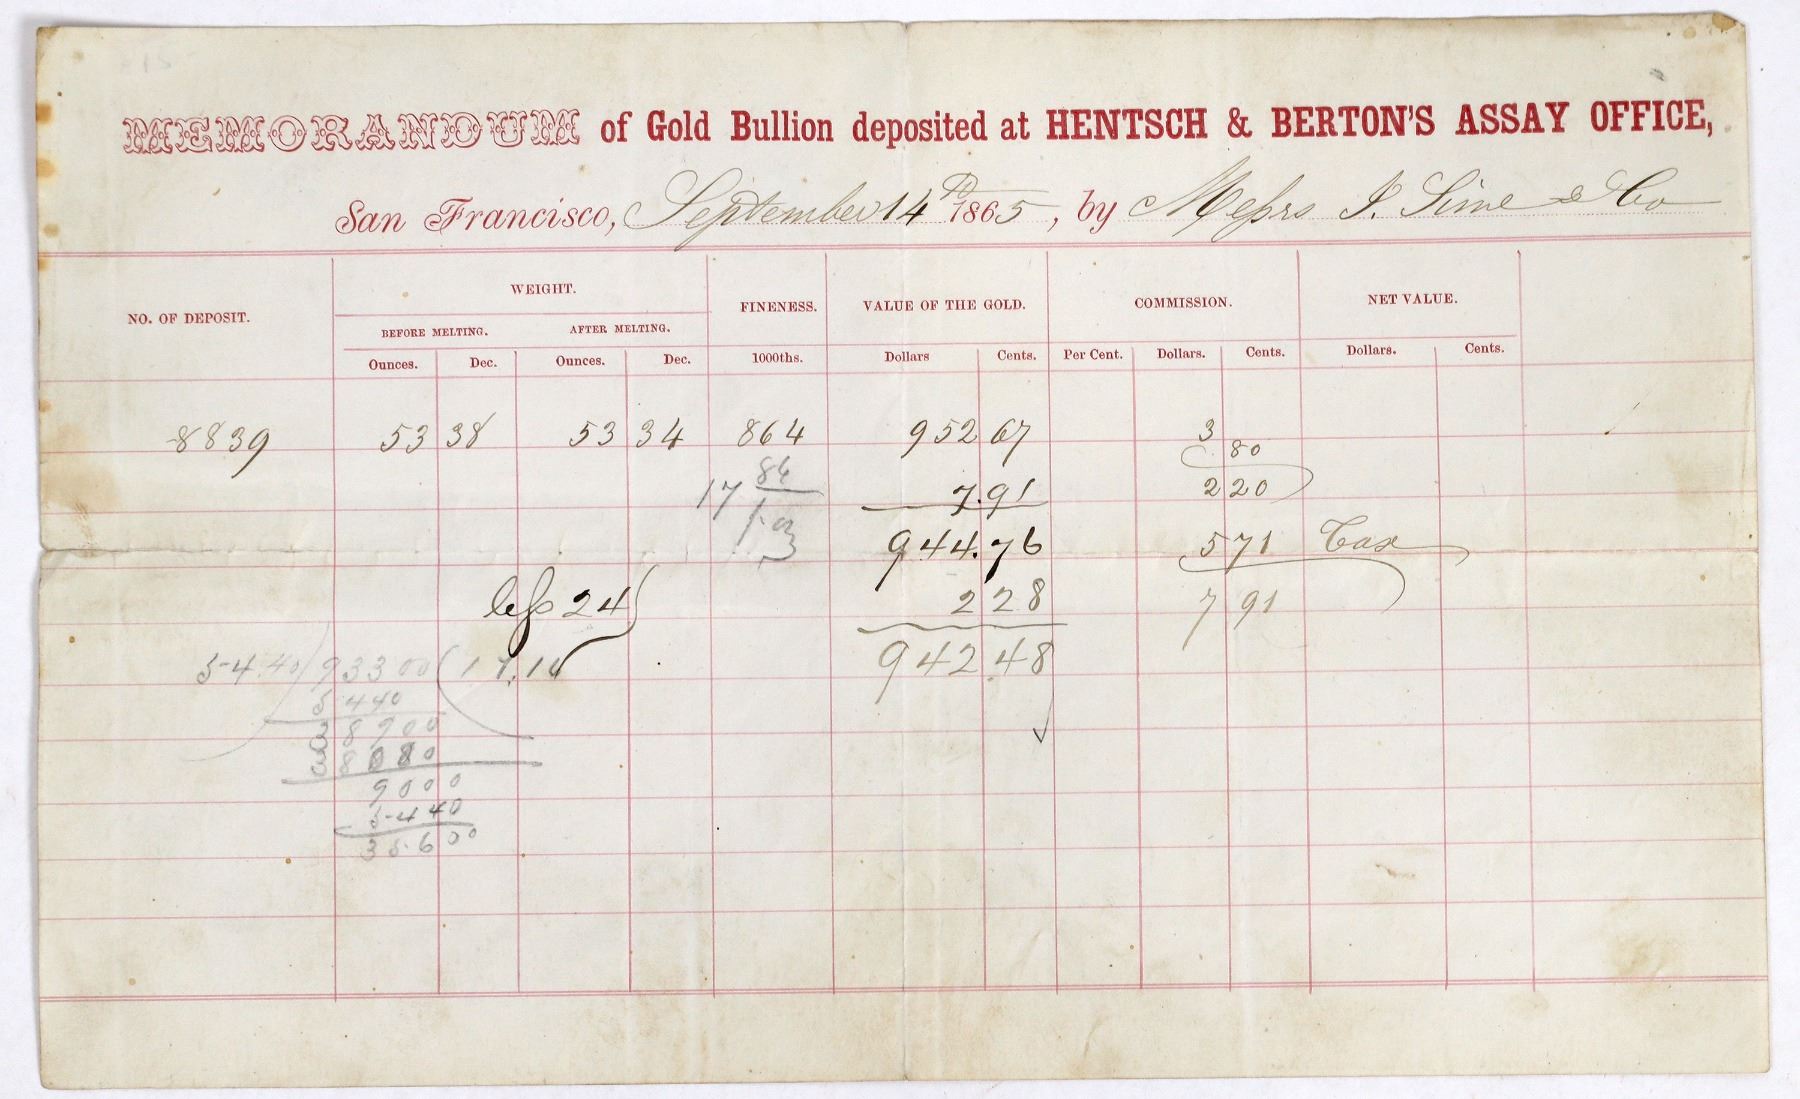 MEMORANDUM of Gold Bullion deposited at HENTSCH & BERTON'S ASSAY OFFICE,
San Francisco, September 14th 1865, by Messrs J. Sime & Co
NO. OF DEPOSIT. WEIGHT. FINENESS. VALUE OF THE GOLD. COMMISSION. NET VALUE.
BEFORE MELTING. AFTER MELTING.
Ounces. Dec. Ounces. Dec. 1000ths. Dollars Cents. Per Cent. Dollars. Cents. Dollars. Cents.
8839 53 38 53 34 864 952 67 3
80
86
17 7.91 2 20
1.03
944.76 5 71 Tax
less 24 2 28 7 91
54.40 93300 17.1 942.48
5440
38900
38080
9000
5440
35600